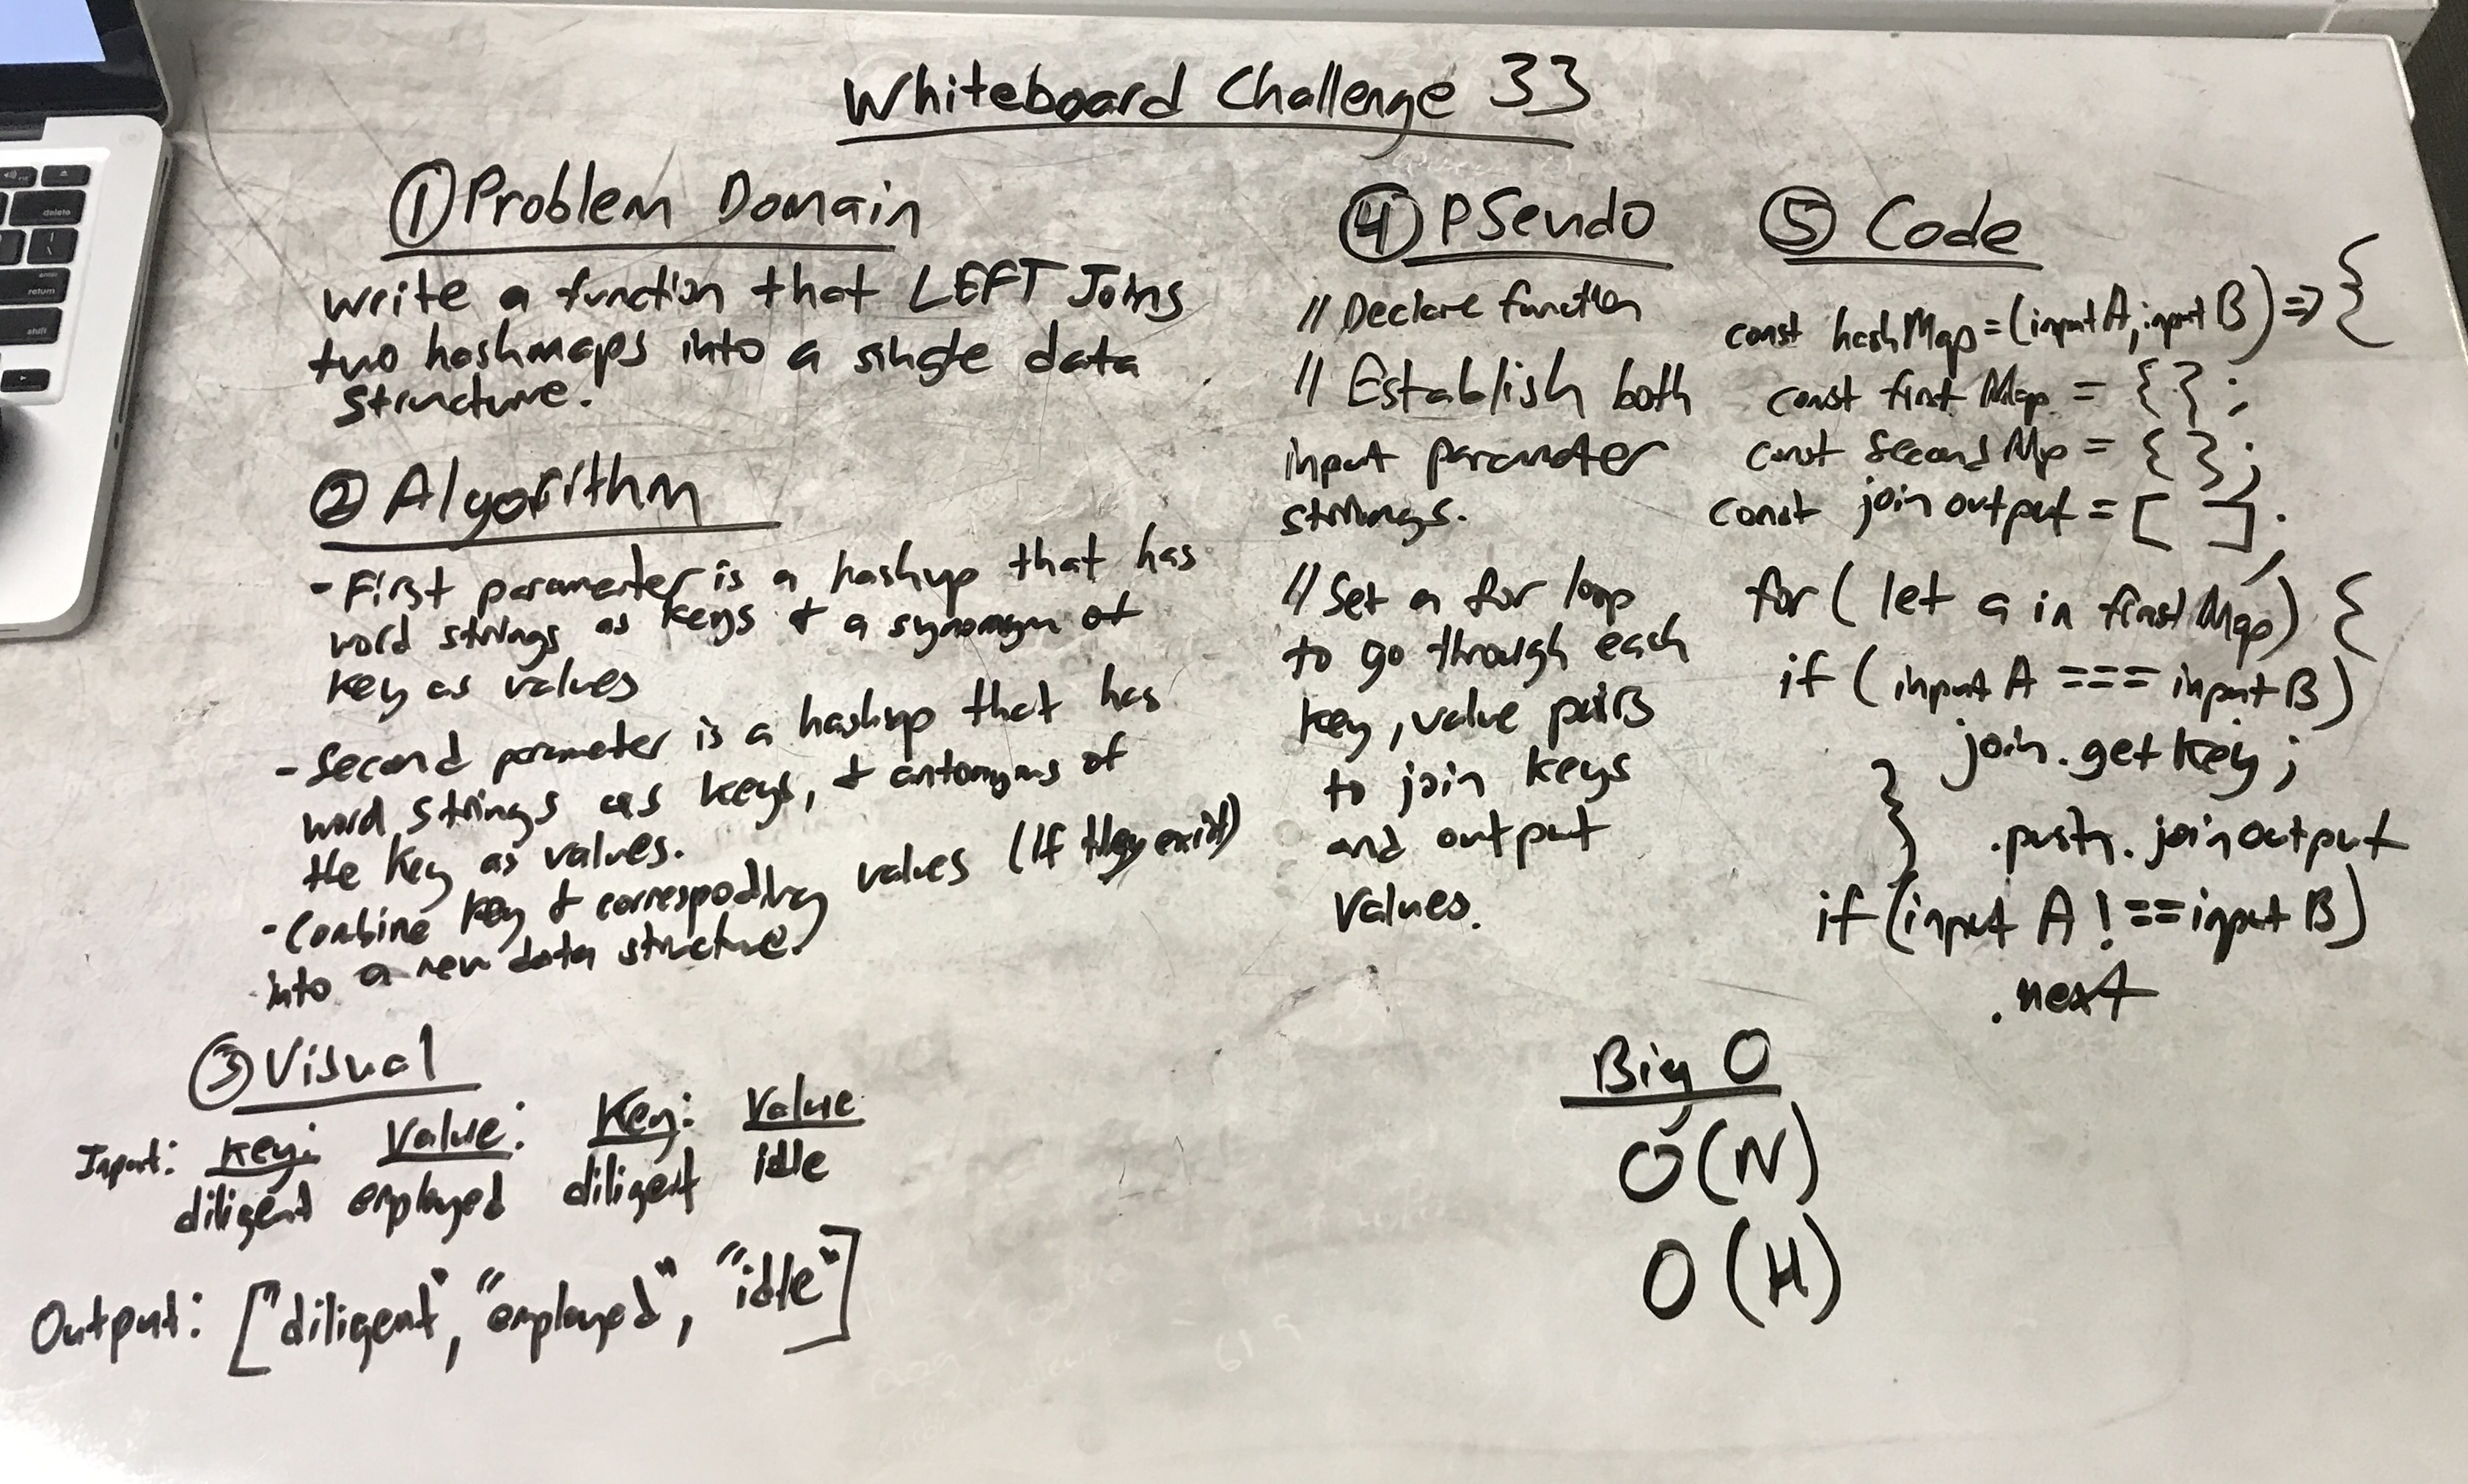 Whiteboard Challenge 33
① Problem Domain
Write a function that LEFT Joins
two hashmaps into a single data
structure.
② Algorithm
- First parameter is a hashmp that has
word strings as keys & a synonym of
key as values
- Second parameter is a hashmp that has
word strings as keys, & antonyms of
the key as values.
- Combine key & correspoding values (If they exist)
into a new data structure.
③ Visual
Input: Key: Value: Key: Value
diligent employed diligent idle
Output: ["diligent", "employed", "idle"]
④ PSeudo
// Declare function
// Establish both
input parameter
strings.
// Set a for loop
to go through each
key, value pairs
to join keys
and output
values.
⑤ Code
const hashMap = (inputA, inputB) => {
const first Map = { } ;
const Second Mp = { } ;
const join output = [ ] ;
for ( let a in first Map) {
if ( input A === input B )
join.get key ;
} .push. join output
if (input A ! == input B )
.next
Big O
O(N)
O(H)
delete
enter
return
shift